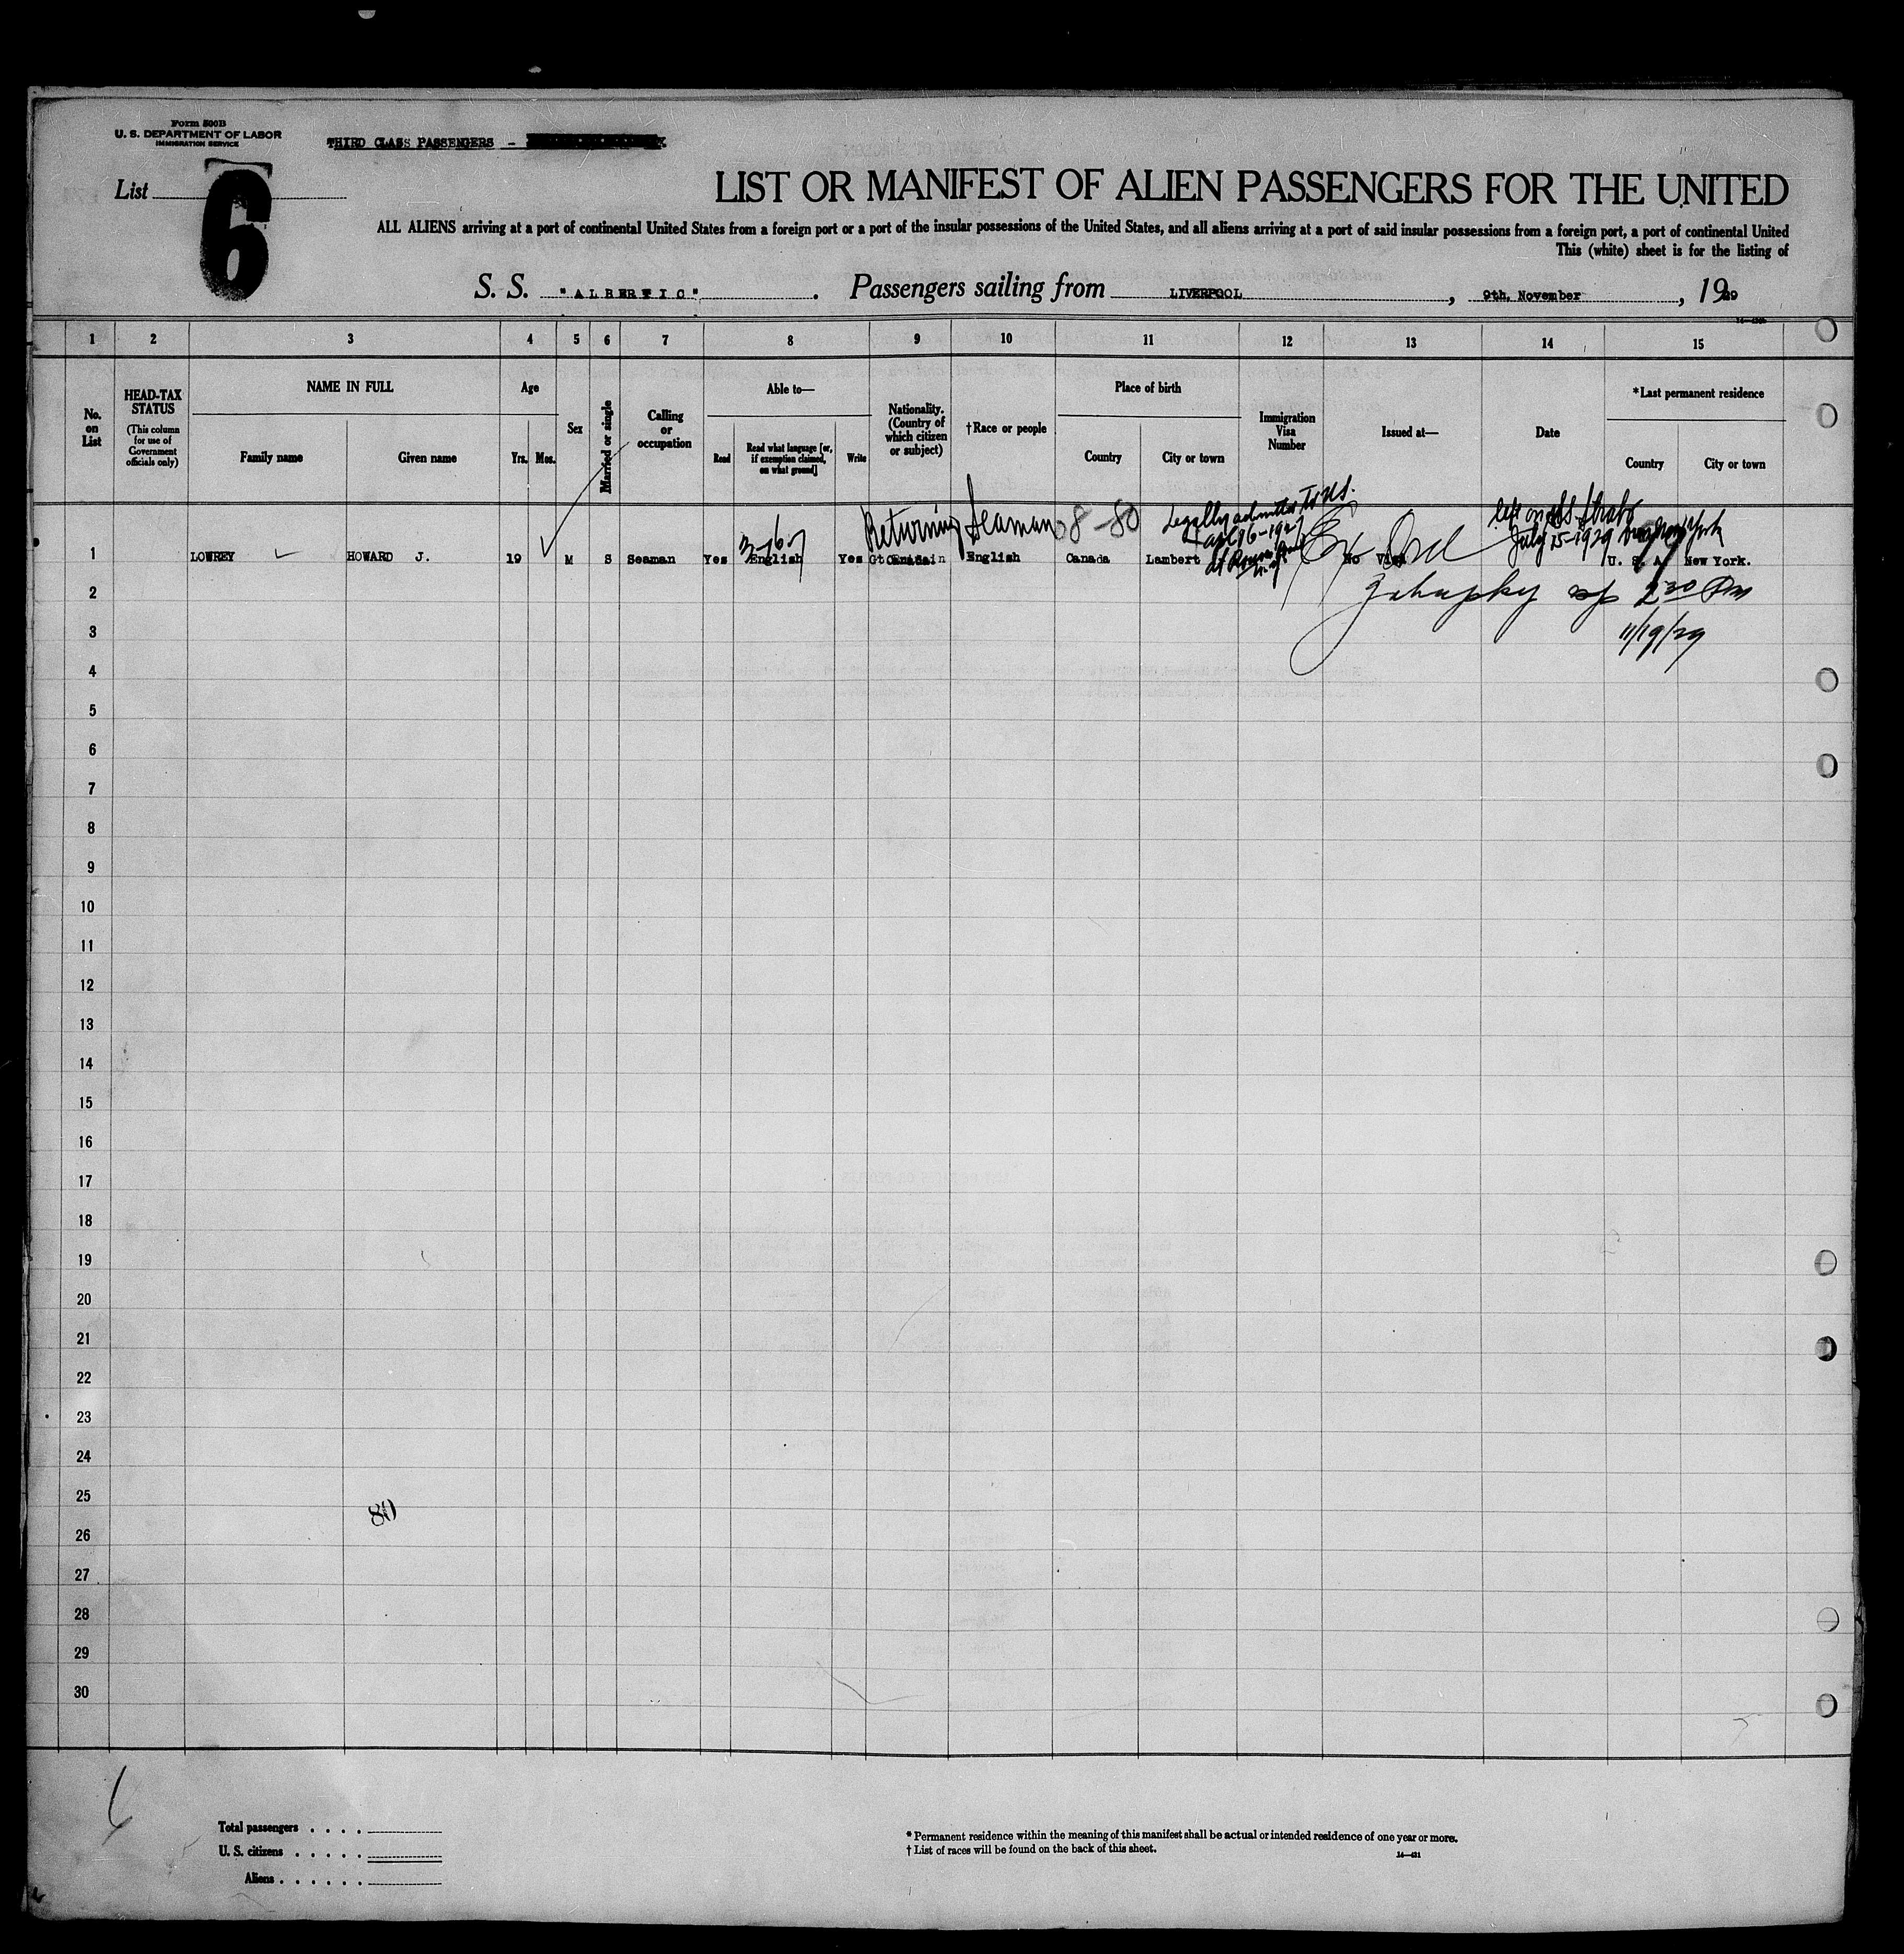 Form 500B
U. S. DEPARTMENT OF LABOR
IMMIGRATION SERVICE
THIRD CLASS PASSENGERS -
List 6
LIST OR MANIFEST OF ALIEN PASSENGERS FOR THE UNITED
ALL ALIENS arriving at a port of continental United States from a foreign port or a port of the insular possessions of the United States, and all aliens arriving at a port of said insular possessions from a foreign port, a port of continental United
This (white) sheet is for the listing of
S. S. "ALBERTIC". Passengers sailing from LIVERPOOL, 9th, November, 1929
1 2 3 4 5 6 7 8 9 10 11 12 13 14 15
No. on List
HEAD-TAX STATUS
(This column for use of Government officials only)
NAME IN FULL
Family name Given name
Age
Yrs. Mos.
Sex
Married or single
Calling or occupation
Able to—
Read
Read what language [or, if exemption claimed, on what ground]
Write
Nationality. (Country of which citizen or subject)
†Race or people
Place of birth
Country City or town
Immigration Visa Number
Issued at—
Date
*Last permanent residence
Country City or town
Returning Seaman 08-80 Legally admitted to U.S.
July 15-1929 New York
1 LOWREY HOWARD J. 19 M S Seaman Yes English Yes Gt Britain English Canada Lambert No Visa U. S. A. New York.
2 2 30 Pm
3 11/19/29
4
5
6
7
8
9
10
11
12
13
14
15
16
17
18
19
20
21
22
23
24
25
80
26
27
28
29
30
Total passengers . . . .
U. S. citizens . . . . .
Aliens . . . . . .
* Permanent residence within the meaning of this manifest shall be actual or intended residence of one year or more.
† List of races will be found on the back of this sheet.
14—431